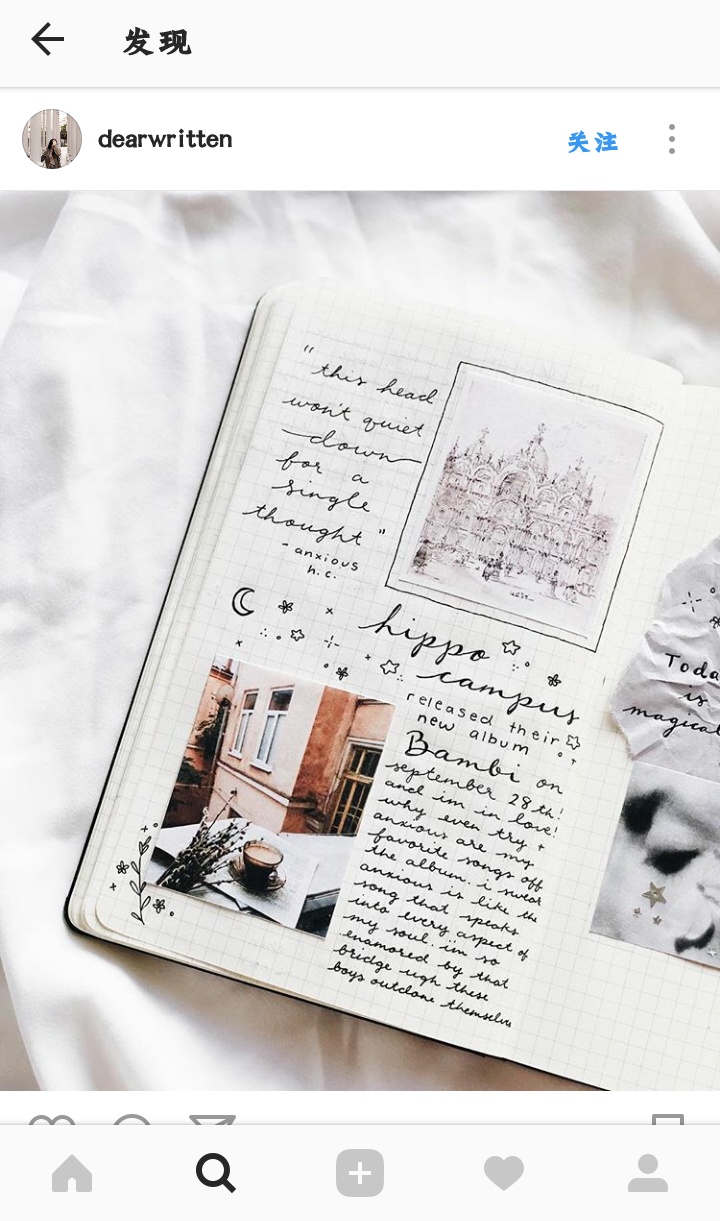 发现
dearwritten
关注
"this head
won't quiet
down
for a
single
thought"
- anxious
h.c.
hippo
campus
released their
new album
Bambi on
september 28th!
and im in love!
why even try +
anxious are my
favorite songs off
the album. i swear
anxious is like the
song that speaks
into every aspect of
my soul. i'm so
enamored by that
bridge ugh these
boys outdone themselves
Toda
is
magical